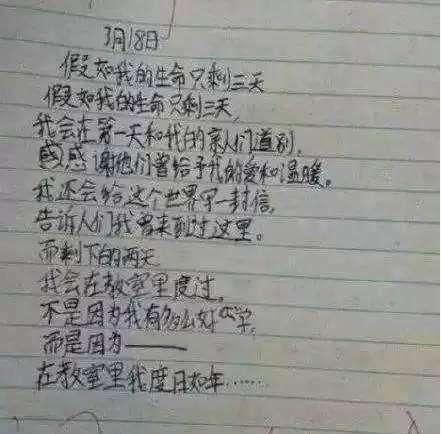 3月18日
假如我的生命只剩三天
假如我的生命只剩三天,
我会在第一天和我的亲人们道别,
感感谢他们曾给予我的爱和温暖。
我还会给这个世界写一封信,
告诉人们我曾来到过这里。
而剩下的两天
我会在教室里度过,
不是因为我有多么好学,
而是因为——
在教室里我度日如年……